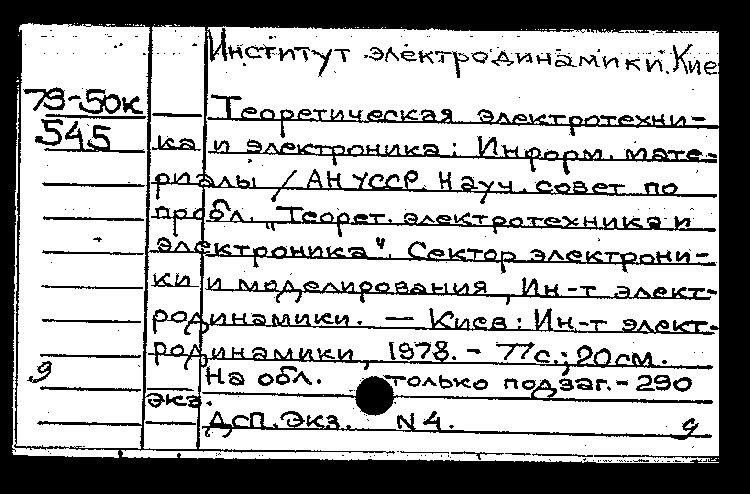 Институт электродинамики. Кие
79-50к
545
Теоретическая электротехни-
ка и электроника: Информ. мате-
риалы / АН УССР. Науч. совет по
пробл. "Теорет. электротехника и
электроника". Сектор электрони-
ки и моделирования, Ин-т элект-
родинамики. — Киев: Ин-т элект-
родинамики, 1978. - 77 с.; 20 см.
На обл. только подзаг. - 290
экз.
Дсп. Экз. N 4.